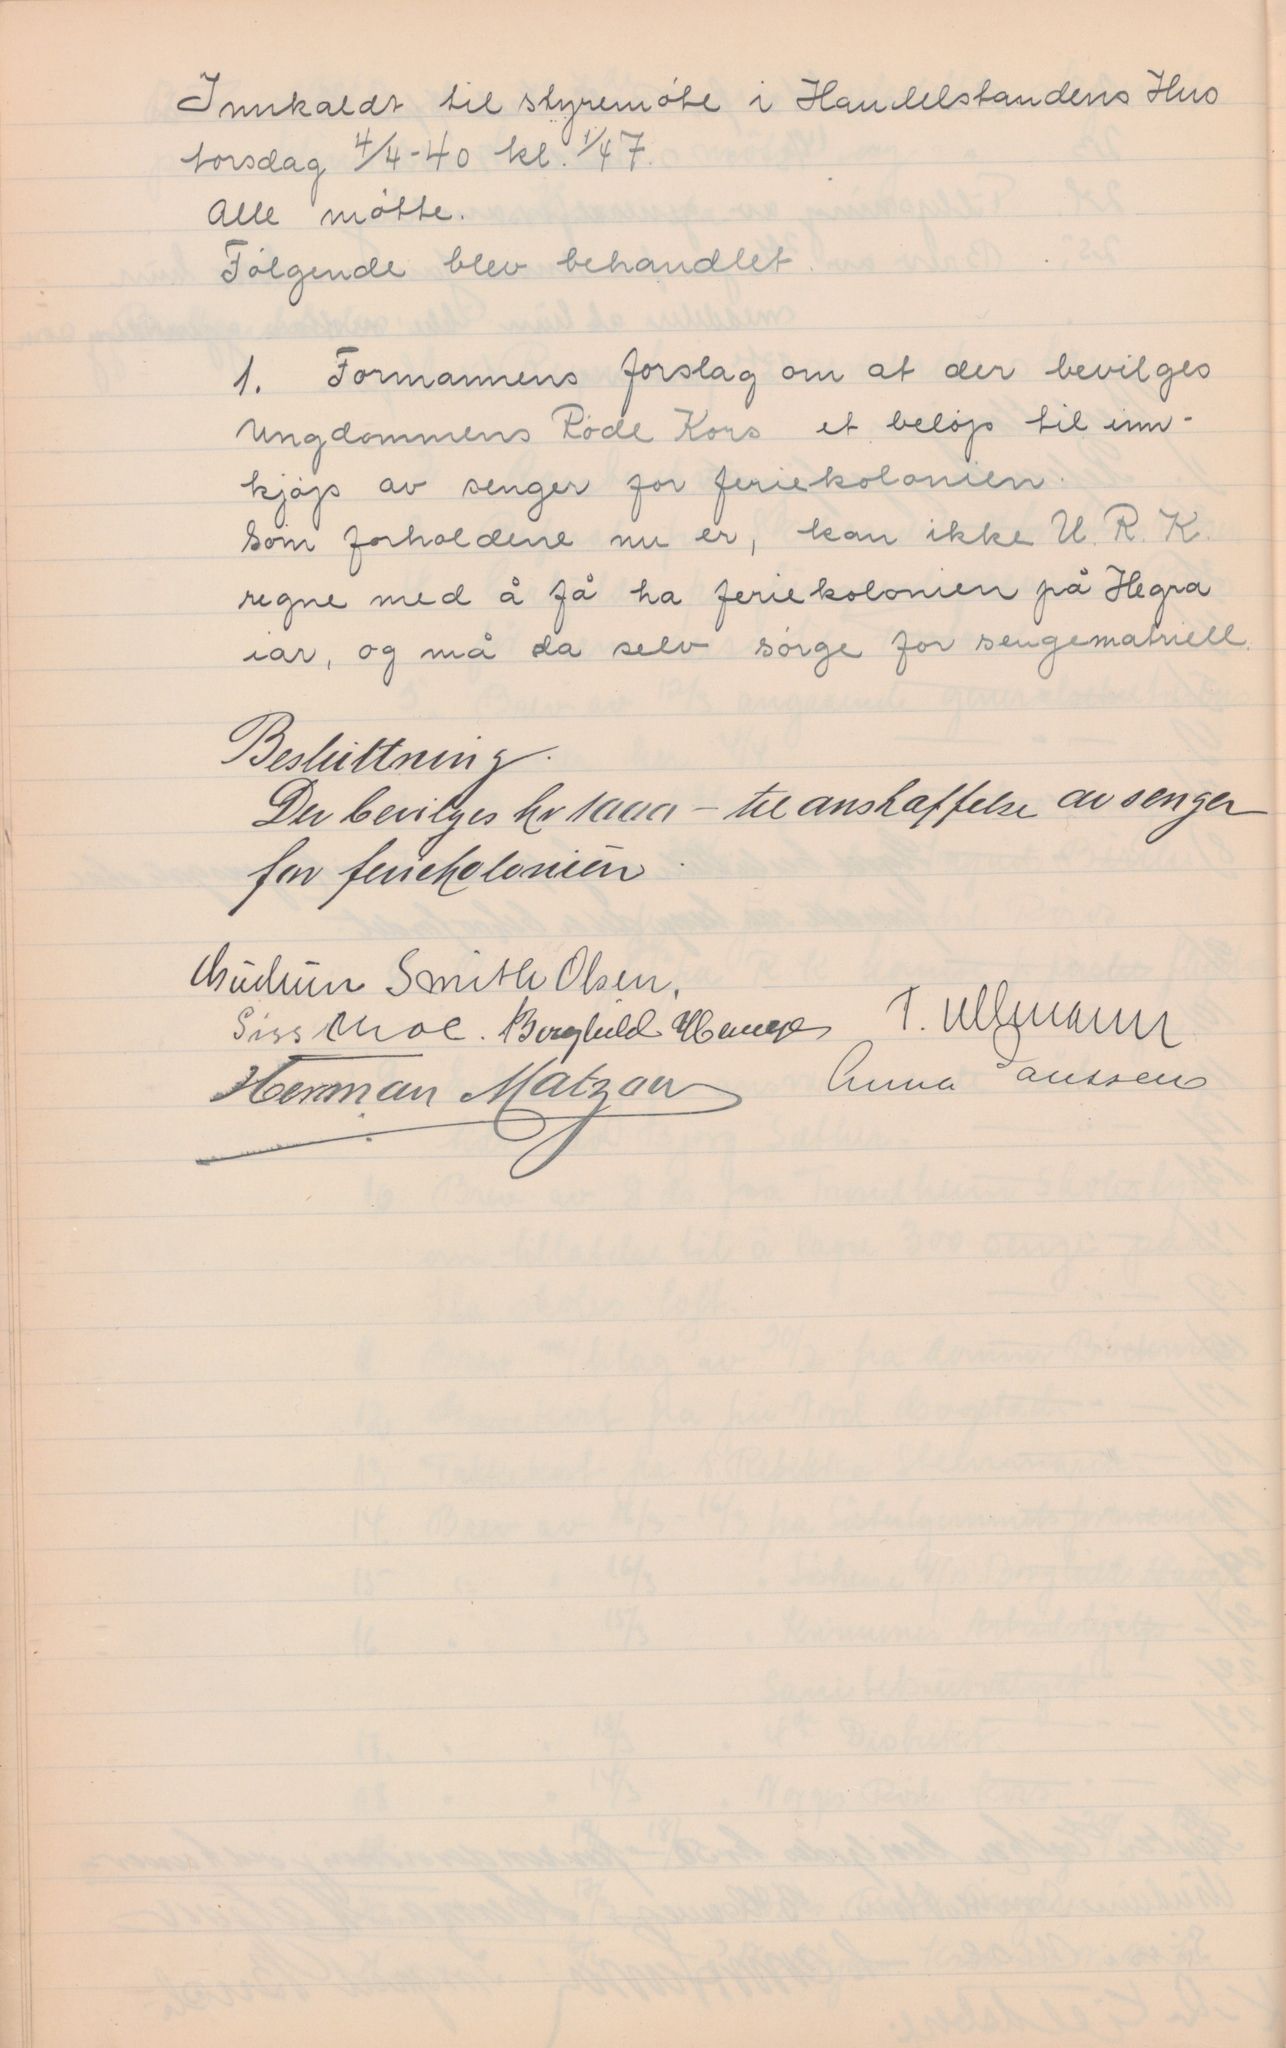 Innkaldt til styremöte i Handelstandens Hus
torsdag 4/4-40 kl. 1/4 7.
Alle mötte.
Følgende blev behandlet.
1. Formannens forslag om at der bevilges
Ungdommens Røde Kors et beløp til inn-
kjøp av senger for feriekolonien.
Som forholdene nu er, kan ikke U. R. K.
regne med å få ha feriekolonien på Hegra
iår, og må da selv sörge for sengematriell.
Beslüttning.
Der bevilges kr 1000 - til anskaffelse av senger
for feriekolonien.
Gudrun Smith Olsen.
Siss Moe. Borghild Hauge T. Ullmann
Herman Matzow Anna Janssen